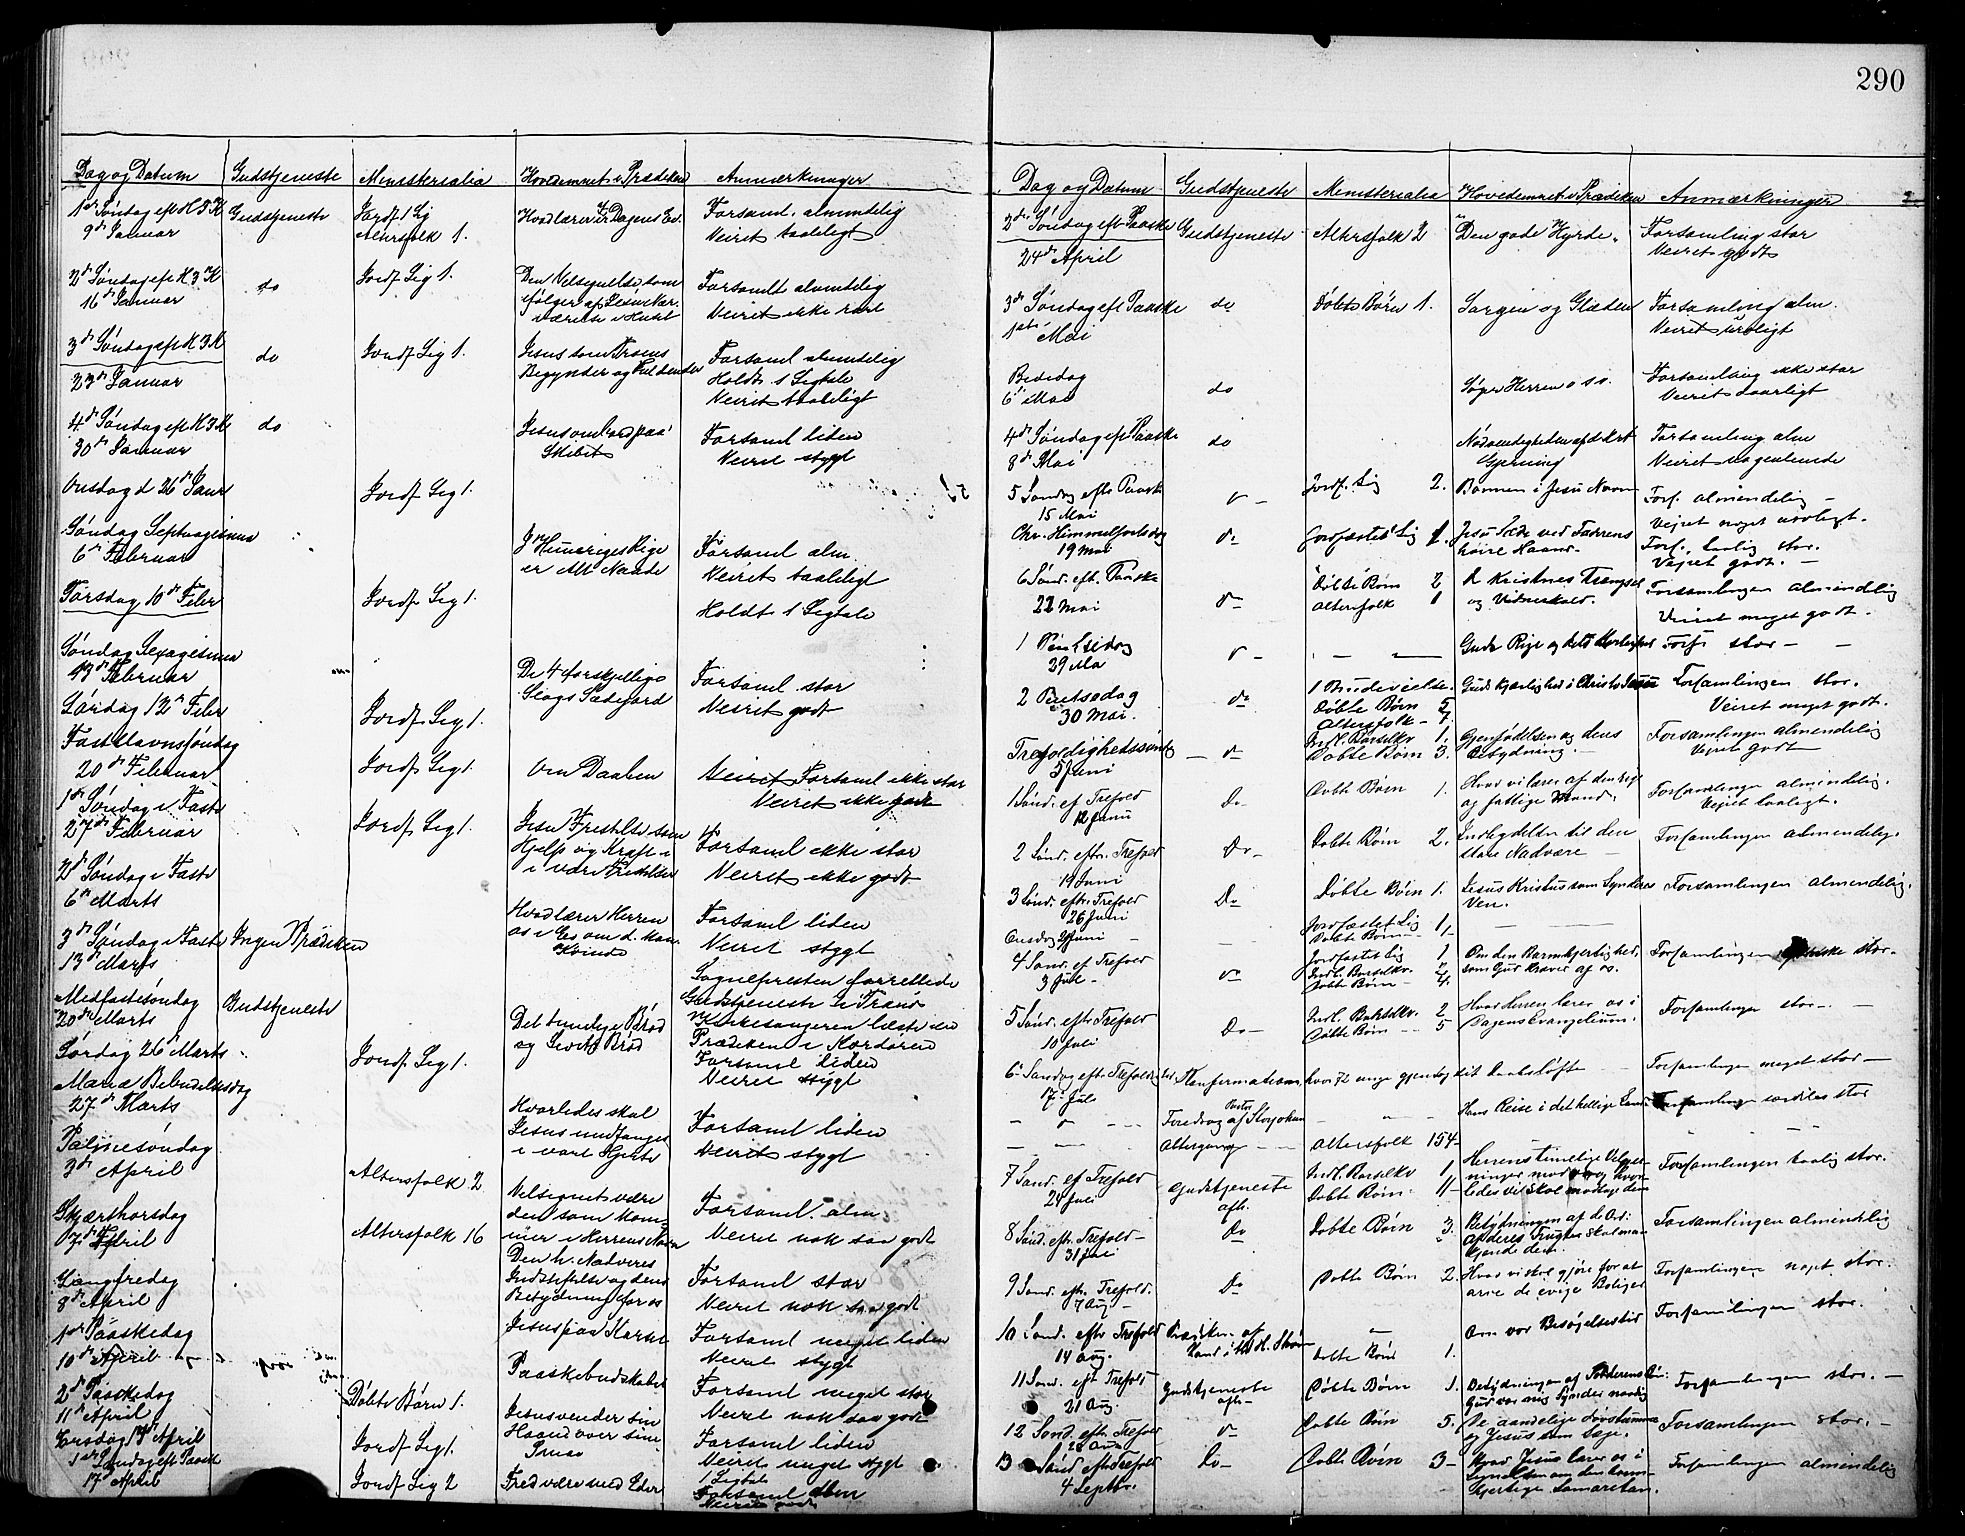 290
Dag og Datum Gudstjeneste Ministerialia Hovedemnet i Prædiken Anmærkninger
1ste Søndag eft H 3 K Gudstjeneste Jordf 1 Lig Hvad lærer Dagens Ev. Forsaml. almindelig
9de Januar Altersfolk 1. Veiret taaleligt
2den Søndag eft H 3 K do Jordf Lig 1. Den Velsignelse som Forsaml almindelig
16de Januar følger af Jesu Nær- Veiret ikke rart
værelse i Huset
3de Søndag eft H 3 K do Jordf Lig 1. Jesus som Troens Forsaml almindelig
23de Januar Begynder og Fuldender Holdt 1 Ligtale
Veiret taaleligt
4de Søndag eft H 3 K do Jesus ombord paa Forsaml liden
30de Januar Skibet Veiret stygt
Onsdag d 26de Januar Jordf Lig 1.
Søndag Septuagesima I Himmeriges Rige Forsaml alm.
6te Februar er Alt Naade Veiret taaleligt
Torsdag 10de Feber Jordf Lig 1. Holdt 1 Ligtale
Søndag Sexagesima De 4 forskjellige Forsaml stor
13de Februar Slags Sædejord Veiret godt
Lørdag 12te Feber Jordf Lig 1.
Fastelavnssøndag Jordf Lig 1. Om Daaben Forsaml ikke stor
20de Februar Veiret ikke godt
1ste Søndag i Faste Jordf Lig 1. Jesu Fristelse som Forsaml ikke stor
27de Februar Hjelp og Kraft i Veiret ikke godt
2den Søndag i Faste i vore Fristelser
6te Marts Hvad lærer Herren Forsaml liden
3de Søndag i Faste Ingen Prædiken os i Ev om d. kan. Veiret stygt
13de Marts Kvinde
Midfastesøndag Gudstjeneste Sognepresten forrettede
20de Marts Det timelige Brød Gudstjeneste i
og Livets Brød Kirkesangeren læste en
Lørdag 26de Marts Jordf Lig 1. Prædiken i
Forsaml liden
Mariæ Bebudelsesdag Veiret stygt
27de Marts Hvorledes skal Forsaml liden
Palmesøndag Jesus modtages Veiret stygt
3de April i vort Hjerte
Altersfolk 2
Skjærthorsdag Velsignet være Forsaml alm
7de April Altersfolk 16 den som kom- Veiret nok saa godt
mer i Herrens Navn
Langfredag Den h. Nadveres Forsaml stor
8de April Indstiftelse og dens Veiret nok saa godt
Betydning for os
1ste Paaskedag Jesus paa Korset Forsaml meget liden
10de April Veiret stygt
2den Paaskedag Døbte Børn 1. Paaskebudskabet Forsaml meget stor
11te April Veiret nok saa godt
Jordf Lig 1. Jesus vender sin Forsaml liden
Haand over sine Veiret meget stygt
1ste Søndag eft Paaske Smaa 1 Ligtale
17de April Jordf Lig 2 Fred være med Eder Forsaml alm
Veiret godt
Dag og Datum Gudstjeneste Ministerialia Hovedemnet i Prædiken Anmærkninger
2den Søndag eft Paaske Gudstjeneste Altersfolk 2 "Den gode Hyrde" Forsamling stor
24de April Veiret godt
3de Søndag eft Paaske do Døbte Børn 1. Sorgen og Glæden Forsamling alm.
1ste Mai Veiret uroligt
Bededag do Søger Herren o s v. Forsamling ikke stor
6te Mai Veiret daarligt
4de Søndag eft Paaske do Nødvendigheden af Forsamling alm
8de Mai Gjerning Veiret nogenlunde
5 Søndag efter Paaske do Jordf. Lig 2. Bønnen i Jesu Navn Fors. almindelig —
15 Mai Vejret noget uroligt.
Chr. Himmelfartsdag do Jordfæstet Lig 1. Jesu Sæde ved Faderens Fors. taalig stor.
19 Mai høire Haand. Vejret godt. —
6 Sønd. eft. Paaske do Døbte Børn 2 Kristnes Trængsel Forsamlingen almindelig
22 Mai Altersfolk 1 og Vidneskald. Veiret meget godt. —
1 Pinsedag do Guds Rige og dets Herlighed Fors stor —
29 Mai
2 Pintsedag do 1 Brudevielse. Guds Kjærlighed i Christo Jesu Forsamlingen stor.
30 Mai. Døbte Børn 5 Veiret meget godt.
Altersfolk — 7.
Trefoldighedssøndag do Indl. Barselkv 1. Gjenfødelsen og dens Forsamlingen almindelig
5 Juni Døbte Børn 3. Betydning. — Vejret godt
1 Sønd. ef Trefold Do Døbte Børn 1. Hvad vi lærer af den rige Forsamlingen almindelig.
12 Juni og fattige Mand. Vejret taaleligt.
2 Sønd. eftr. Trefold Do Døbte Børn 2. Indbydelsen til den Forsamlingen almindelig.
19 Juni store Nadvere —
3 Sønd. eftr. Trefold Do Døbte Børn 1. Jesus Kristus som Synderes Forsamlingen almindelig.
26 Juni Ven.
Onsdag Juni Jordfæstet Lig 1
Døbte Børn 1
4 Sønd. ef Trefold do Jordfæstet Lig 1 Om den Barmhjertighed, Forsamlingen stor.
3 Juli Indl. Barselkv. 2 som Gud kræver af os.
Døbte Børn 4.
5 Sønd. eftr Trefold Do Indl. Barselkv. 2 Hvad Herren lærer os i Forsamlingen stor —
10 Juli Døbte Børn 5 Dagens Evangelium.
6te Søndag eftr Trefoldighed Konfirmation, hvor 72 unge gjentog sit Daabsløfte Forsamlingen meget stor —
17de Juli
Foredrag af Pastor Storjohan — Hans Reise i det hellige Land Forsamlingen særdeles stor
Altergang Altersfolk 154
7 Sønd. ef Trefold Gudstjeneste Indl. Barselkv 1 Herrens timelige Velsig- Forsamlingen taalig stor.
24 Juli Døbte Børn 11 ninger mod os og hvor-
ledes vi skal modtage dem
8 Sønd. eftr. Trefold Do Døbte Børn 3. Betydningen af de Ord: Forsamlingen almindelig
31 Juli af deres Frugter skal man
kjende dem.
9 Sønd. eftr. Trefold. Do Døbte Børn 2. Hvad vi skal gjøre for at Forsamlingen noget stor.
7 Aug — arve de evige Boliger
10 Sønd. eftr Trefold Prædiken af — Om vor Besøgelsestid Forsamlingen stor.
14 Aug. Kand. Døbte Børn 1.
11 Sønd. eft Trefold Gudstjeneste Døbte Børn 1. Betydningen af Tolderens Bøn: Forsamlingen stor. —
21 Aug. Gud vær mig Synder naadig
12 Sønd. eftr Trefold do Døbte Børn 5. De aandelige døvstumme Forsamlingen stor. —
28 Aug og Jesus som Læge.
13 Sønd eftr Trefold Do Døbte Børn 3 — Hvad Jesus lærer os i Forsamlingen almindelig
4 Septbr. Lignelsen om den barm-
hjertige Samaritan.